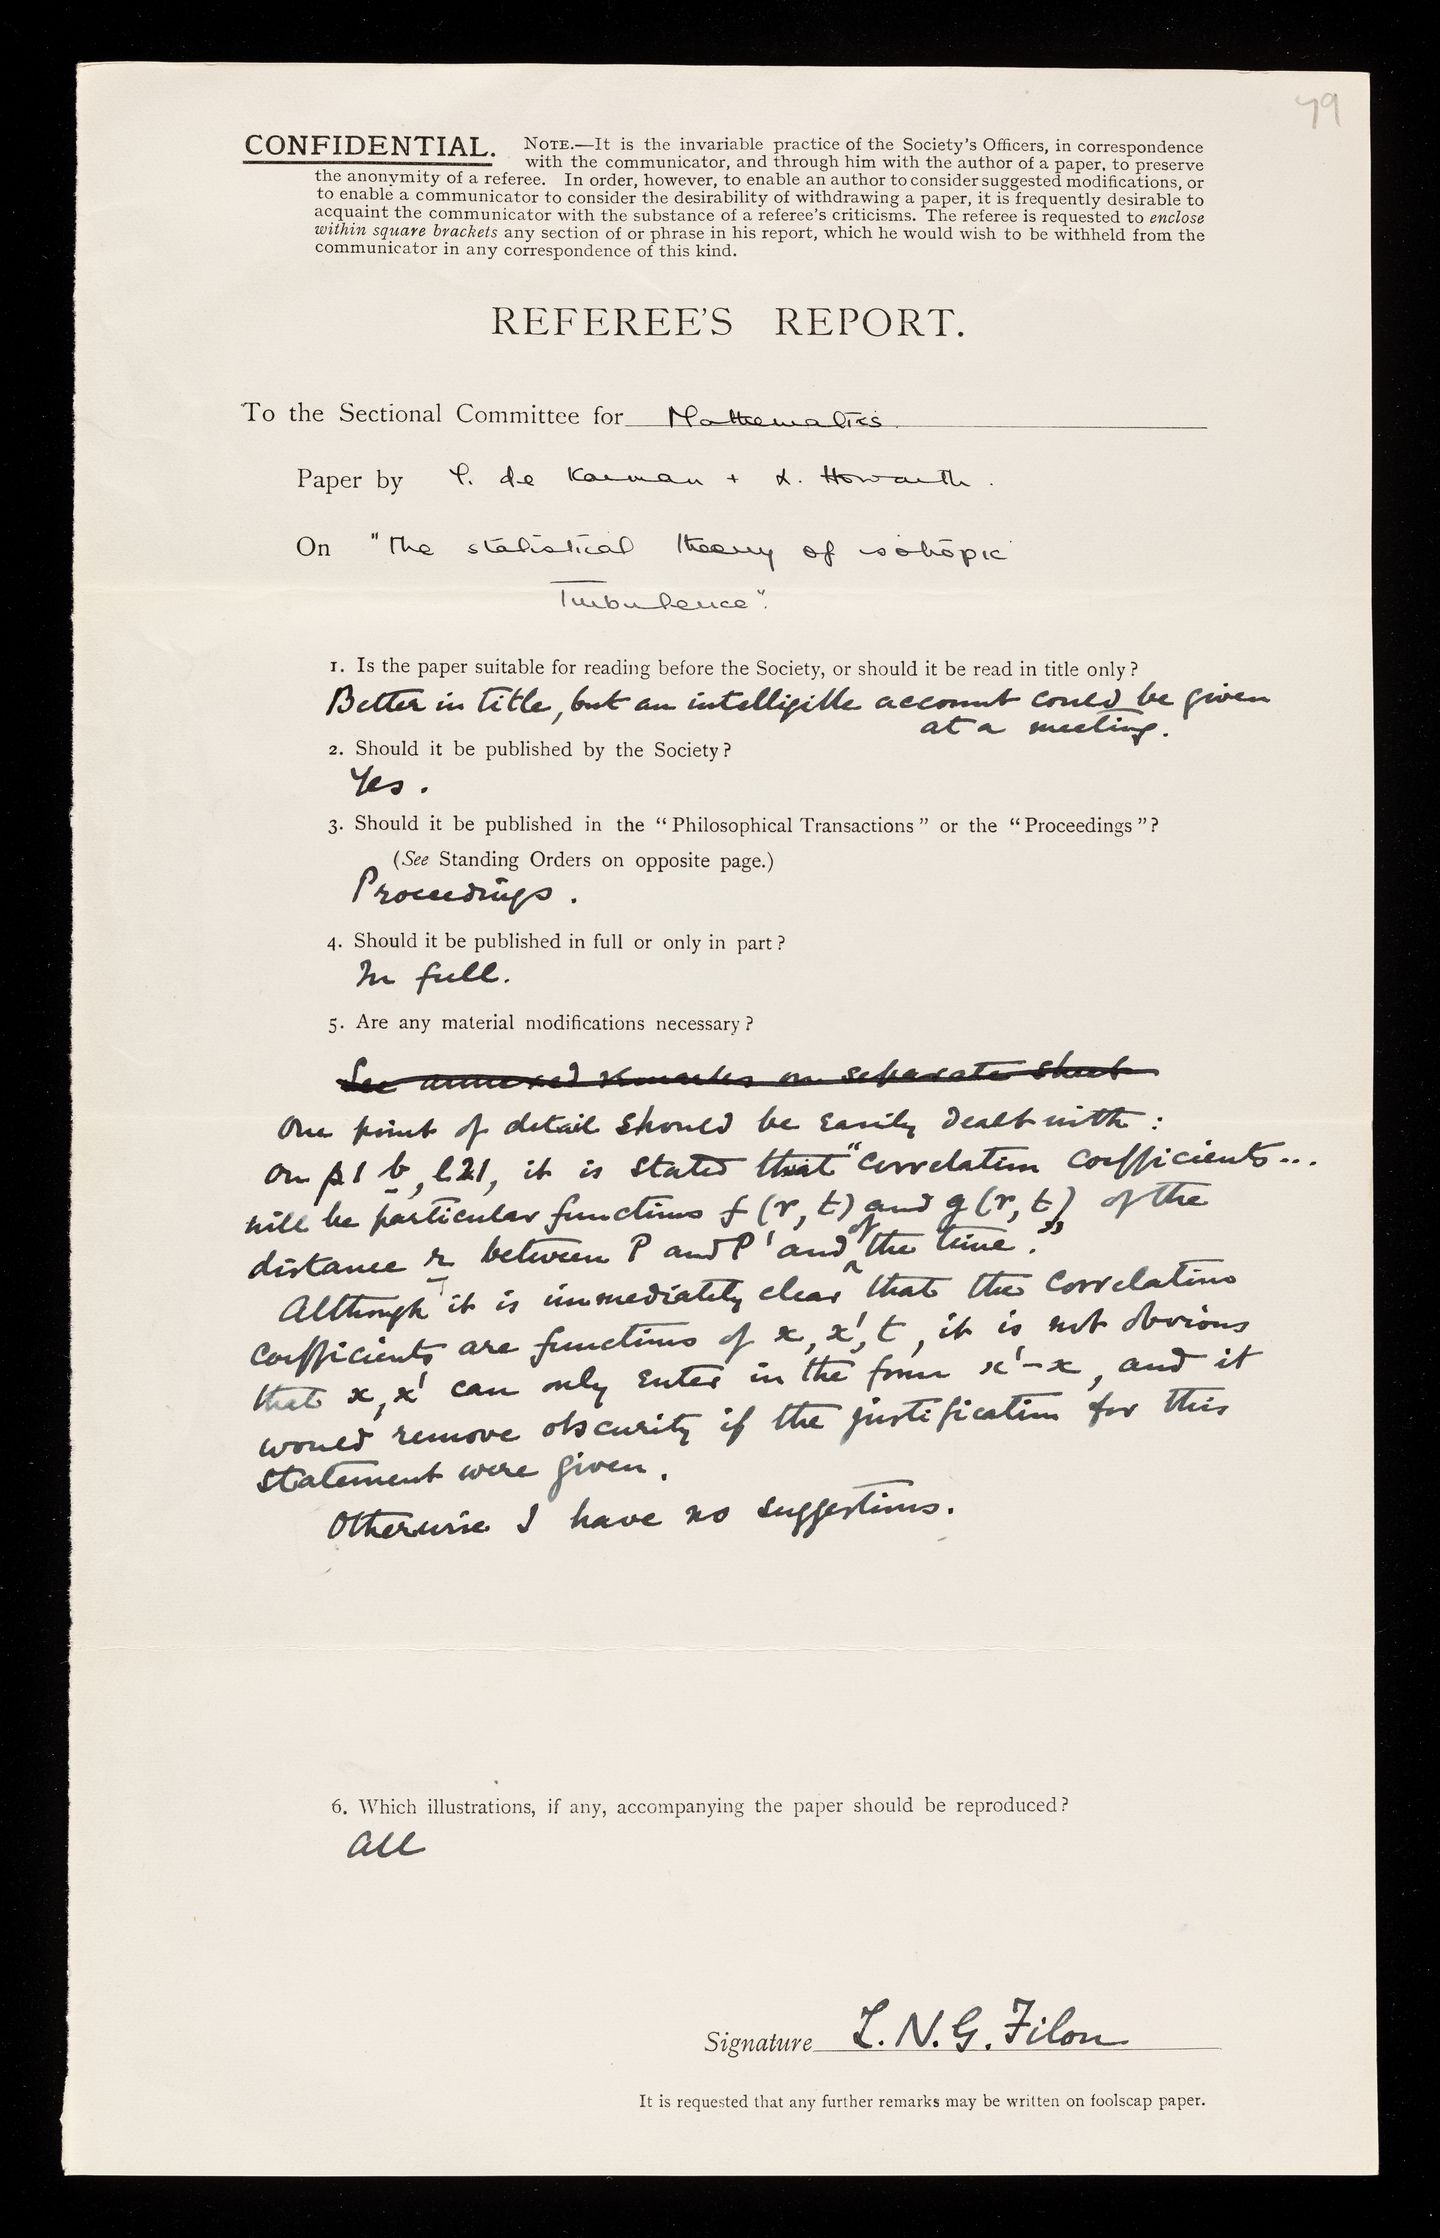 79
CONFIDENTIAL. NOTE.—It is the invariable practice of the Society's Officers, in correspondence
with the communicator, and through him with the author of a paper, to preserve
the anonymity of a referee. In order, however, to enable an author to consider suggested modifications, or
to enable a communicator to consider the desirability of withdrawing a paper, it is frequently desirable to
acquaint the communicator with the substance of a referee's criticisms. The referee is requested to enclose
within square brackets any section of or phrase in his report, which he would wish to be withheld from the
communicator in any correspondence of this kind.
REFEREE'S REPORT.
To the Sectional Committee for Mathematics.
Paper by T. de Karman + L. Howarth.
On "The statistical theory of isotropic
Turbulence".
1. Is the paper suitable for reading before the Society, or should it be read in title only?
Better in title, but an intelligible account could be given
at a meeting.
2. Should it be published by the Society?
Yes.
3. Should it be published in the "Philosophical Transactions" or the "Proceedings"?
(See Standing Orders on opposite page.)
Proceedings.
4. Should it be published in full or only in part?
In full.
5. Are any material modifications necessary?
See annexed remarks on separate sheet
One point of detail should be easily dealt with:
On p. 1 b, l 21, it is stated that "correlation coefficients...
will be particular functions f (r, t) and g (r, t) of the
distance r between P and P' and of the time."
Although it is immediately clear that the correlation
coefficients are functions of x, x', t, it is not obvious
that x, x' can only enter in the form x'-x, and it
would remove obscurity if the justification for this
statement were given.
Otherwise I have no suggestions.
6. Which illustrations, if any, accompanying the paper should be reproduced?
All
Signature L. N. G. Filon
It is requested that any further remarks may be written on foolscap paper.